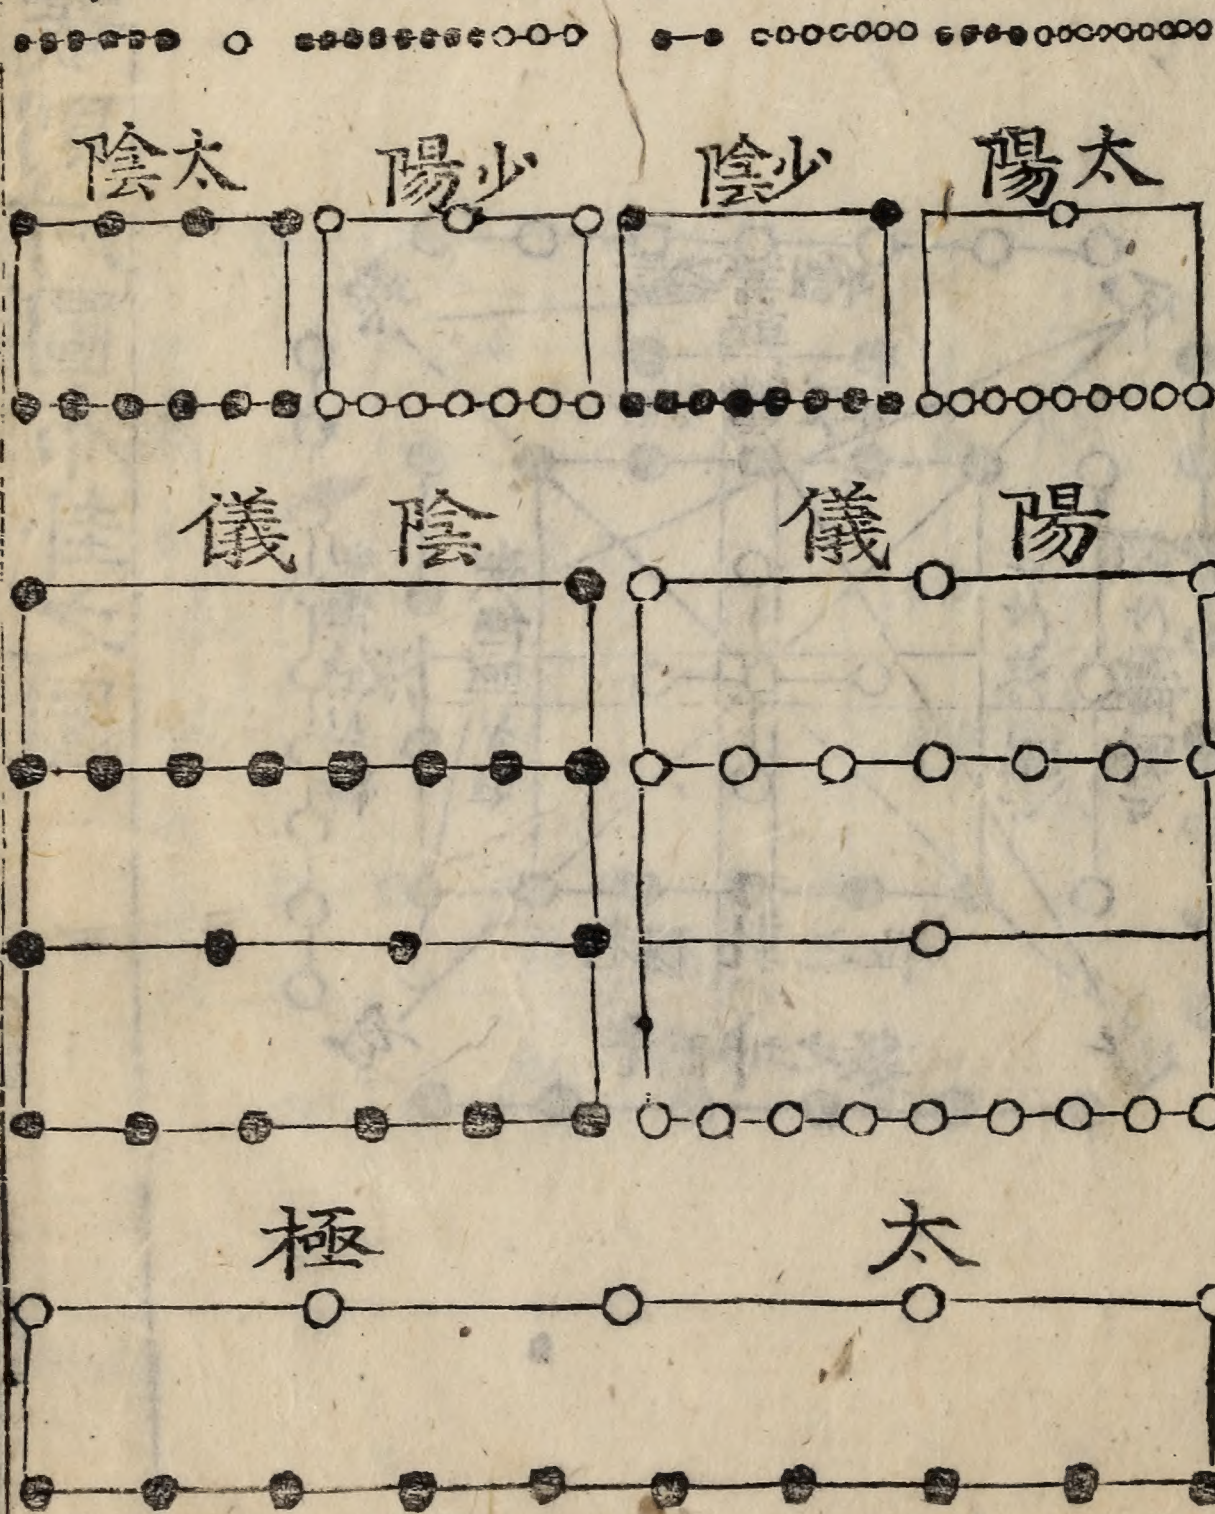 太陽 少陰 少陽 太陰
陽儀 陰儀
太極